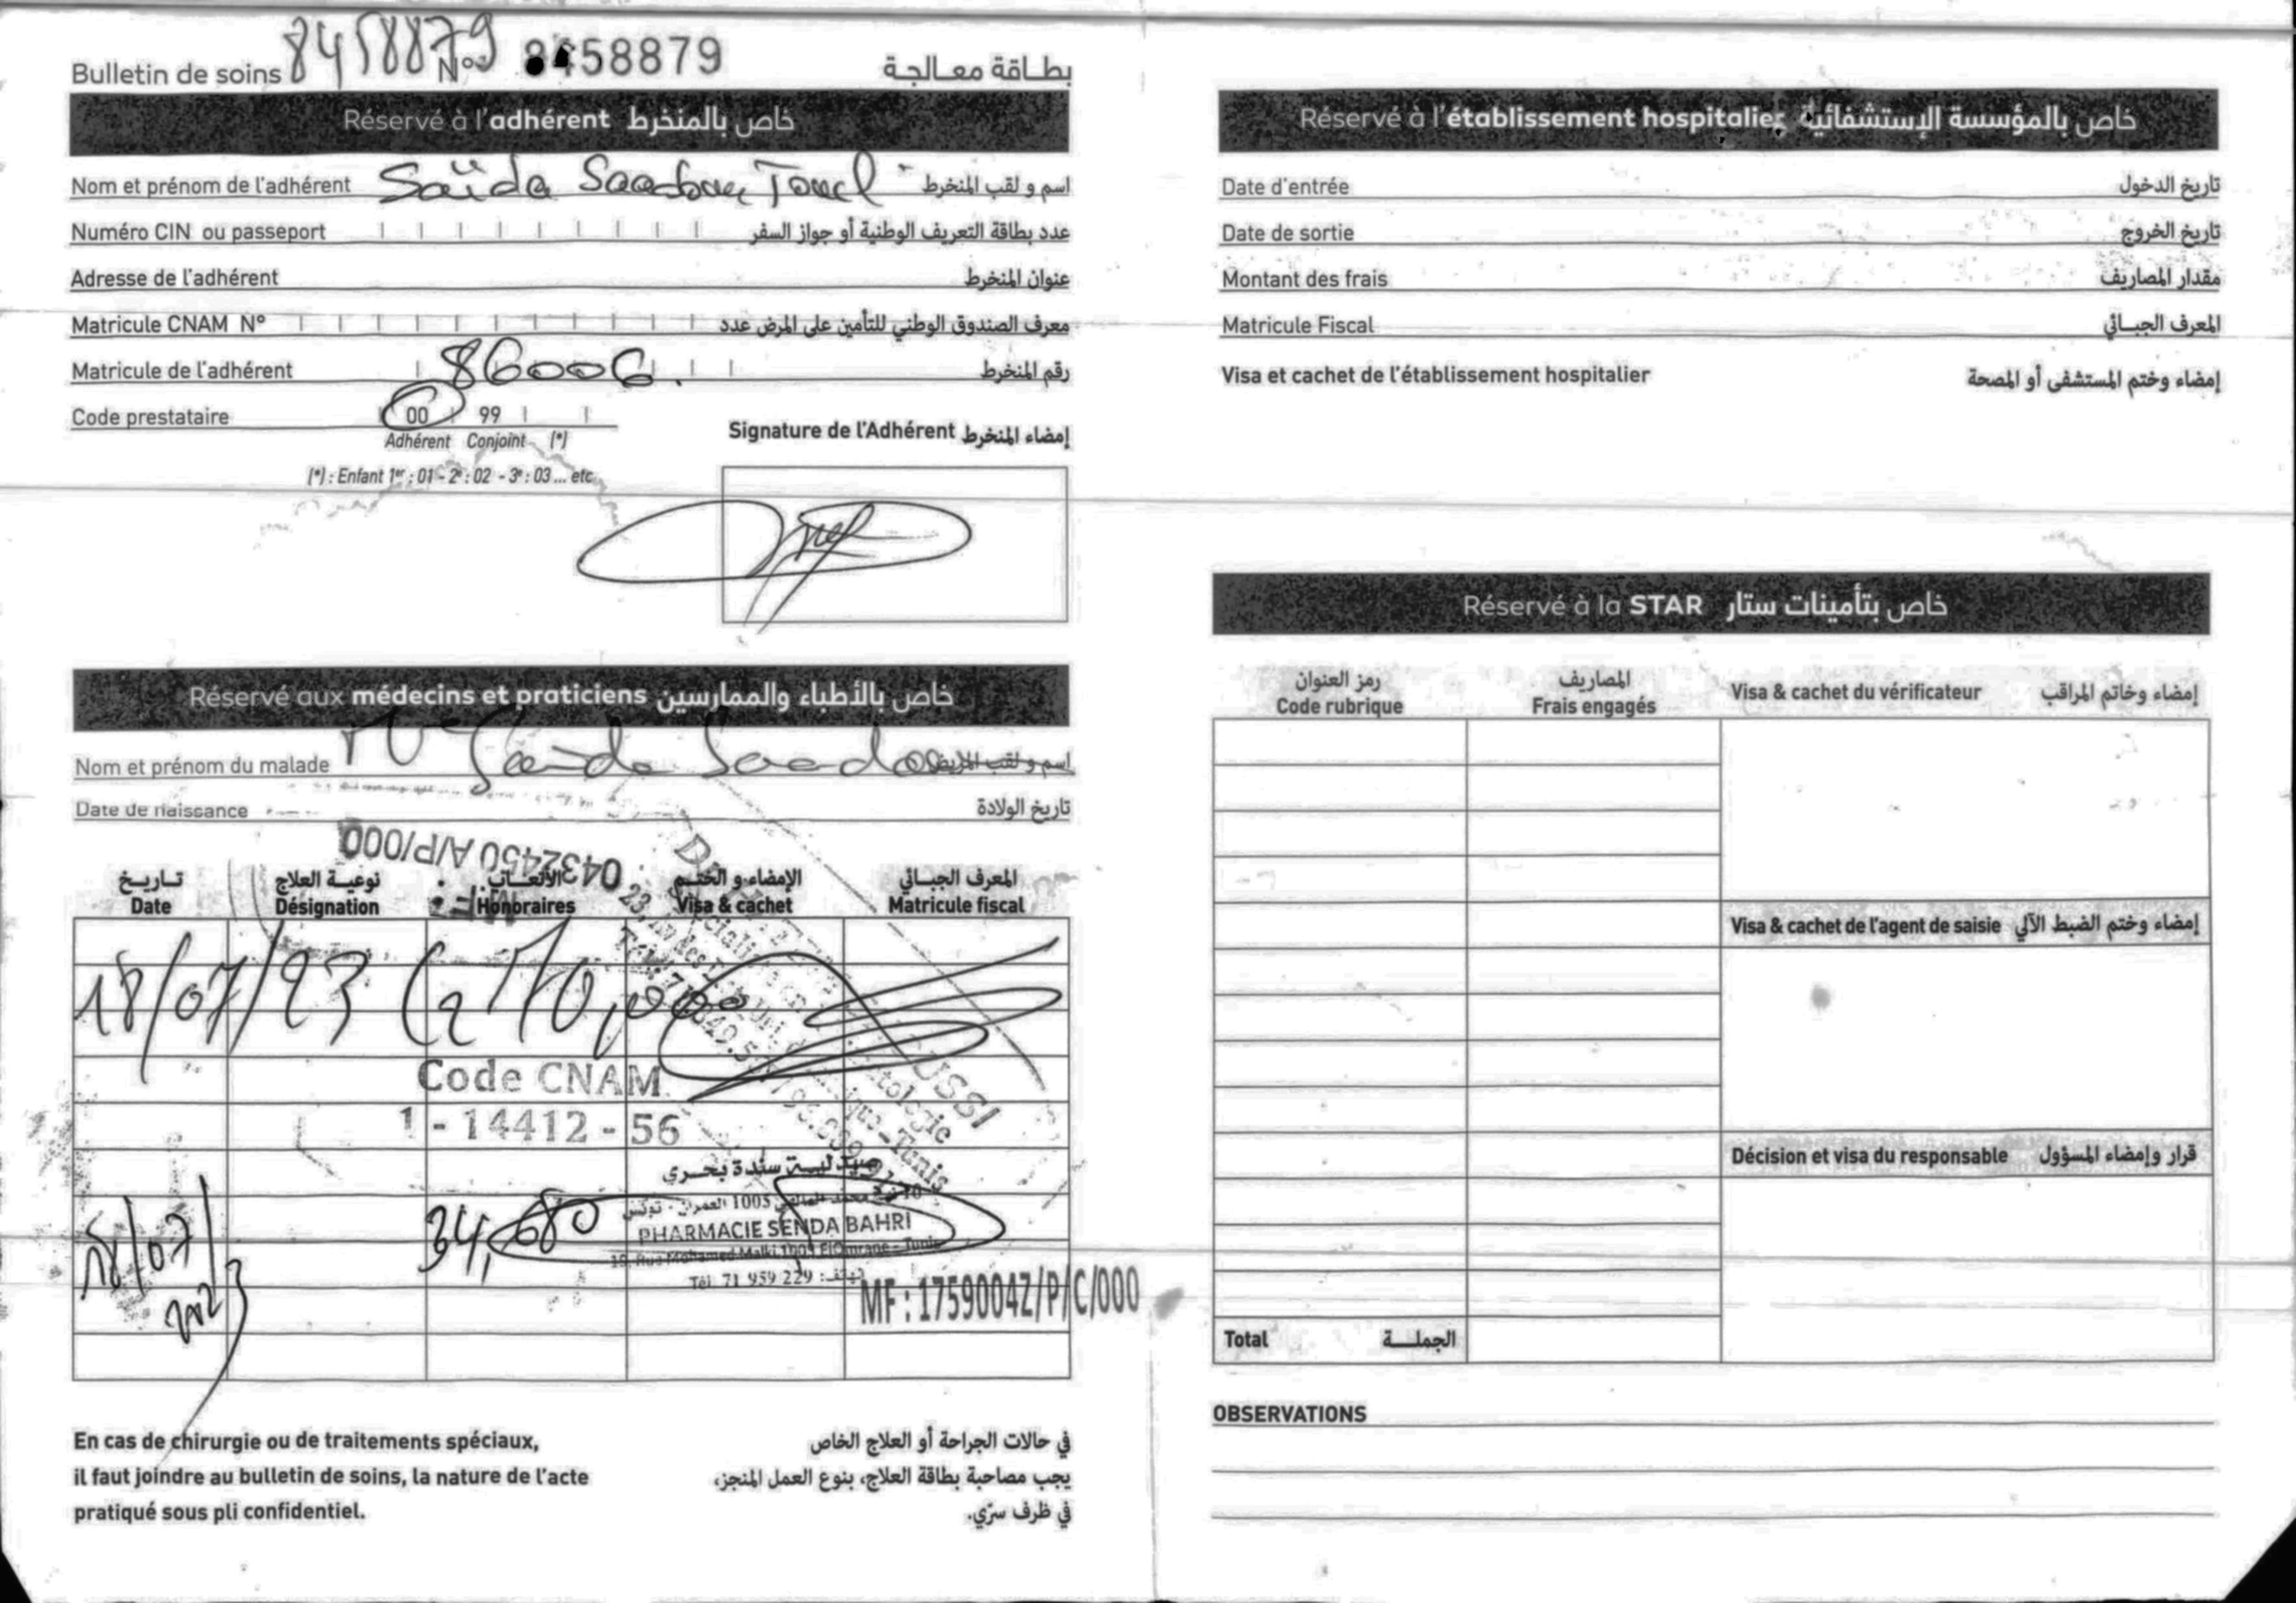 Bulletin de soins 8458879 N° 8458879 بطاقة معالجة
Réservé à l'adhérent خاص بالمنخرط
Nom et prénom de l'adhérent Saïda اسم و لقب المنخرط
Numéro CIN ou passeport عدد بطاقة التعريف الوطنية أو جواز السفر
Adresse de l'adhérent عنوان المنخرط
Matricule CNAM N° معرف الصندوق الوطني للتأمين على المرض عدد
Matricule de l'adhérent 86006 رقم المنخرط
Code prestataire 00 99
Adhérent Conjoint (*)
(*) : Enfant 1er : 01 - 2e : 02 - 3e : 03 ... etc
Signature de l'Adhérent إمضاء المنخرط
Réservé aux médecins et praticiens خاص بالأطباء والممارسين
Nom et prénom du malade Saida اسم و لقب المريض
Date de naissance تاريخ الولادة
0432450 A/P/000
تـاريـخ نوعيـة العلاج الأتعـاب الإمضاء و الختـم المعرف الجبـائي
Date Désignation Honoraires Visa & cachet Matricule fiscal
18/07/23
Code CNAM
1 - 14412 - 56
صيدليـة سندة بحـري
PHARMACIE SENDA BAHRI
10, Rue Mohamed Malki 1005 ElOmrane - Tunis
Tél: 71 959 229
18/07/2023 34,680
MF : 1759004Z/P/C/000
En cas de chirurgie ou de traitements spéciaux,
il faut joindre au bulletin de soins, la nature de l'acte
pratiqué sous pli confidentiel.
في حالات الجراحة أو العلاج الخاص
يجب مصاحبة بطاقة العلاج، بنوع العمل المنجز،
في ظرف سرّي.
Réservé à l'établissement hospitalier خاص بالمؤسسة الإستشفائية
Date d'entrée تاريخ الدخول
Date de sortie تاريخ الخروج
Montant des frais مقدار المصاريف
Matricule Fiscal المعرف الجبـائي
Visa et cachet de l'établissement hospitalier إمضاء وختم المستشفى أو المصحة
Réservé à la STAR خاص بتأمينات ستار
رمز العنوان المصاريف
Code rubrique Frais engagés Visa & cachet du vérificateur إمضاء وخاتم المراقب
Visa & cachet de l'agent de saisie إمضاء وختم الضبط الآلي
Décision et visa du responsable قرار وإمضاء المسؤول
Total الجملـــة
OBSERVATIONS